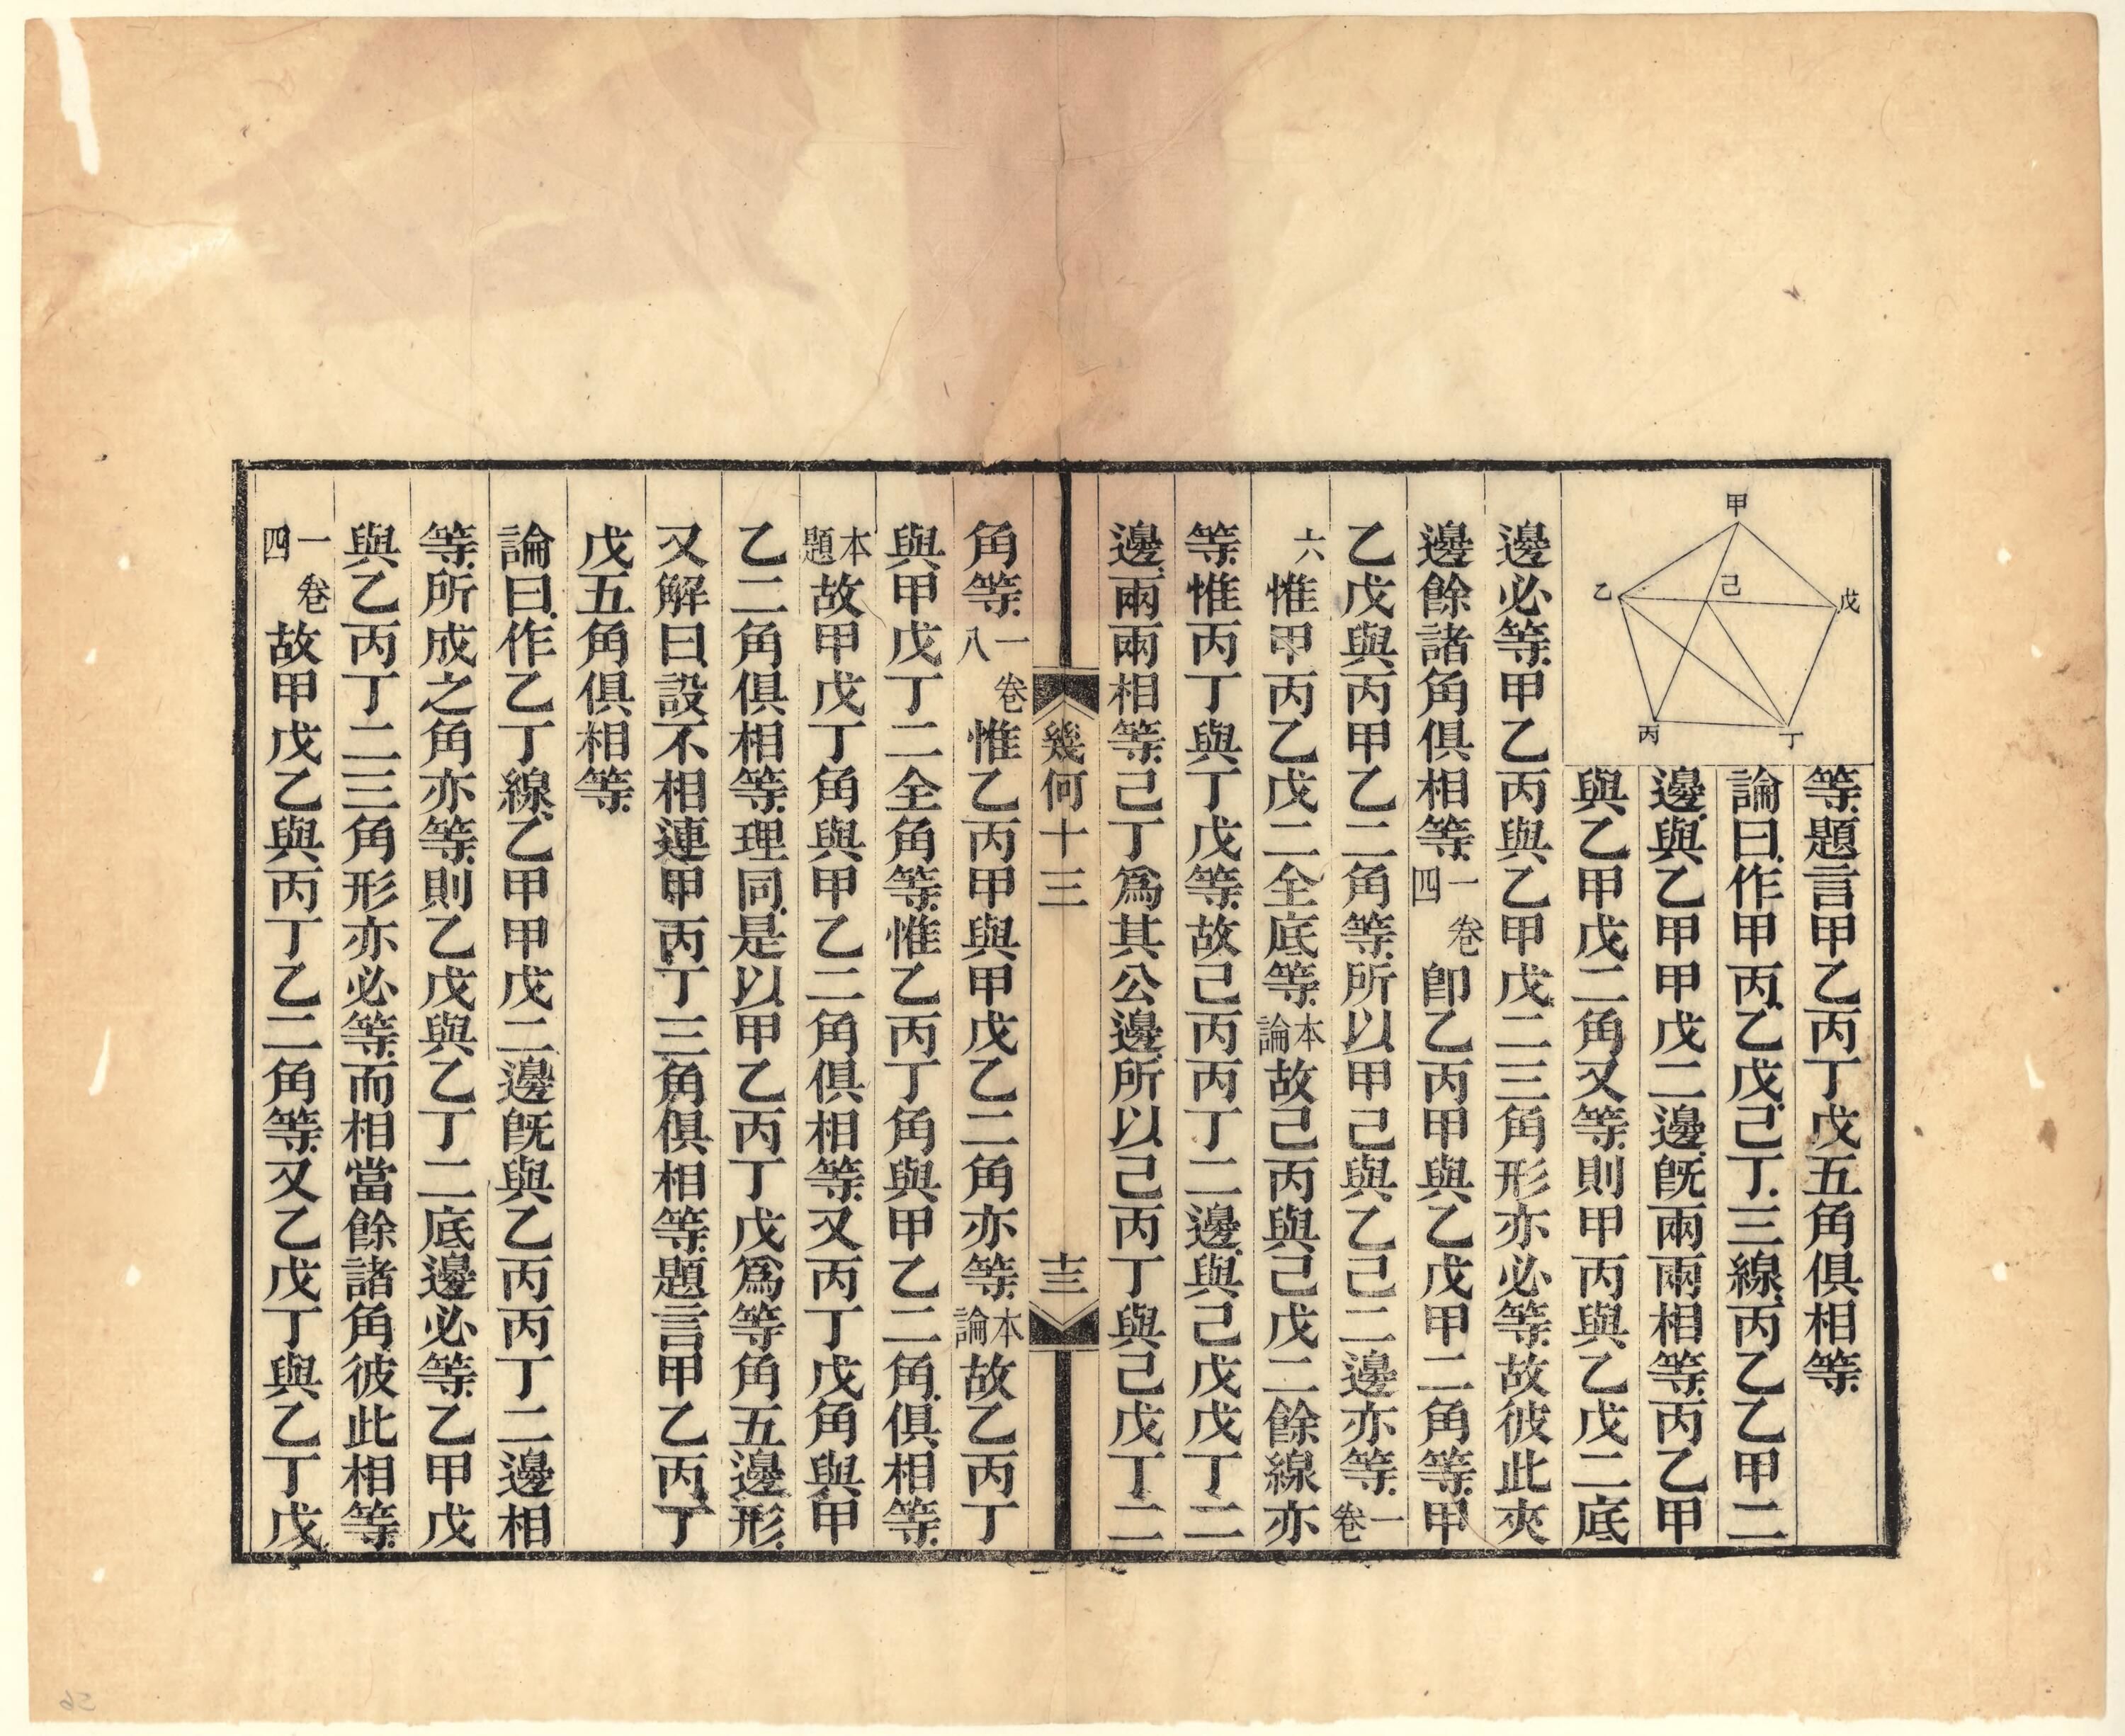 甲
乙
己
戊
丙
丁
等題言甲乙丙丁戊五角俱相等
論曰作甲丙乙戊己丁三線丙乙乙甲二
邊與乙甲甲戊二邊旣兩兩相等丙乙甲
與乙甲戊二角又等則甲丙與乙戊二底
邊必等甲乙丙與乙甲戊二三角形亦必等故彼此夾
邊餘諸角俱相等一卷四卽乙丙甲與乙戊甲二角等甲
乙戊與丙甲乙二角等所以甲己與乙己二邊亦等一卷
六惟甲丙乙戊二全底等本論故己丙與己戊二餘線亦
等惟丙丁與丁戊等故己丙丙丁二邊與己戊戊丁二
邊兩兩相等己丁爲其公邊所以己丙丁與己戊丁二
幾何十三
十三
角等一卷八惟乙丙甲與甲戊乙二角亦等本論故乙丙丁
與甲戊丁二全角等惟乙丙丁角與甲乙二角俱相等
本題故甲戊丁角與甲乙二角俱相等又丙丁戊角與甲
乙二角俱相等理同是以甲乙丙丁戊爲等角五邊形
又解曰設不相連甲丙丁三角俱相等題言甲乙丙丁
戊五角俱相等
論曰作乙丁線乙甲甲戊二邊旣與乙丙丙丁二邊相
等所成之角亦等則乙戊與乙丁二底邊必等乙甲戊
與乙丙丁二三角形亦必等而相當餘諸角彼此相等
一卷四故甲戊乙與丙丁乙二角等又乙戊丁與乙丁戊
56